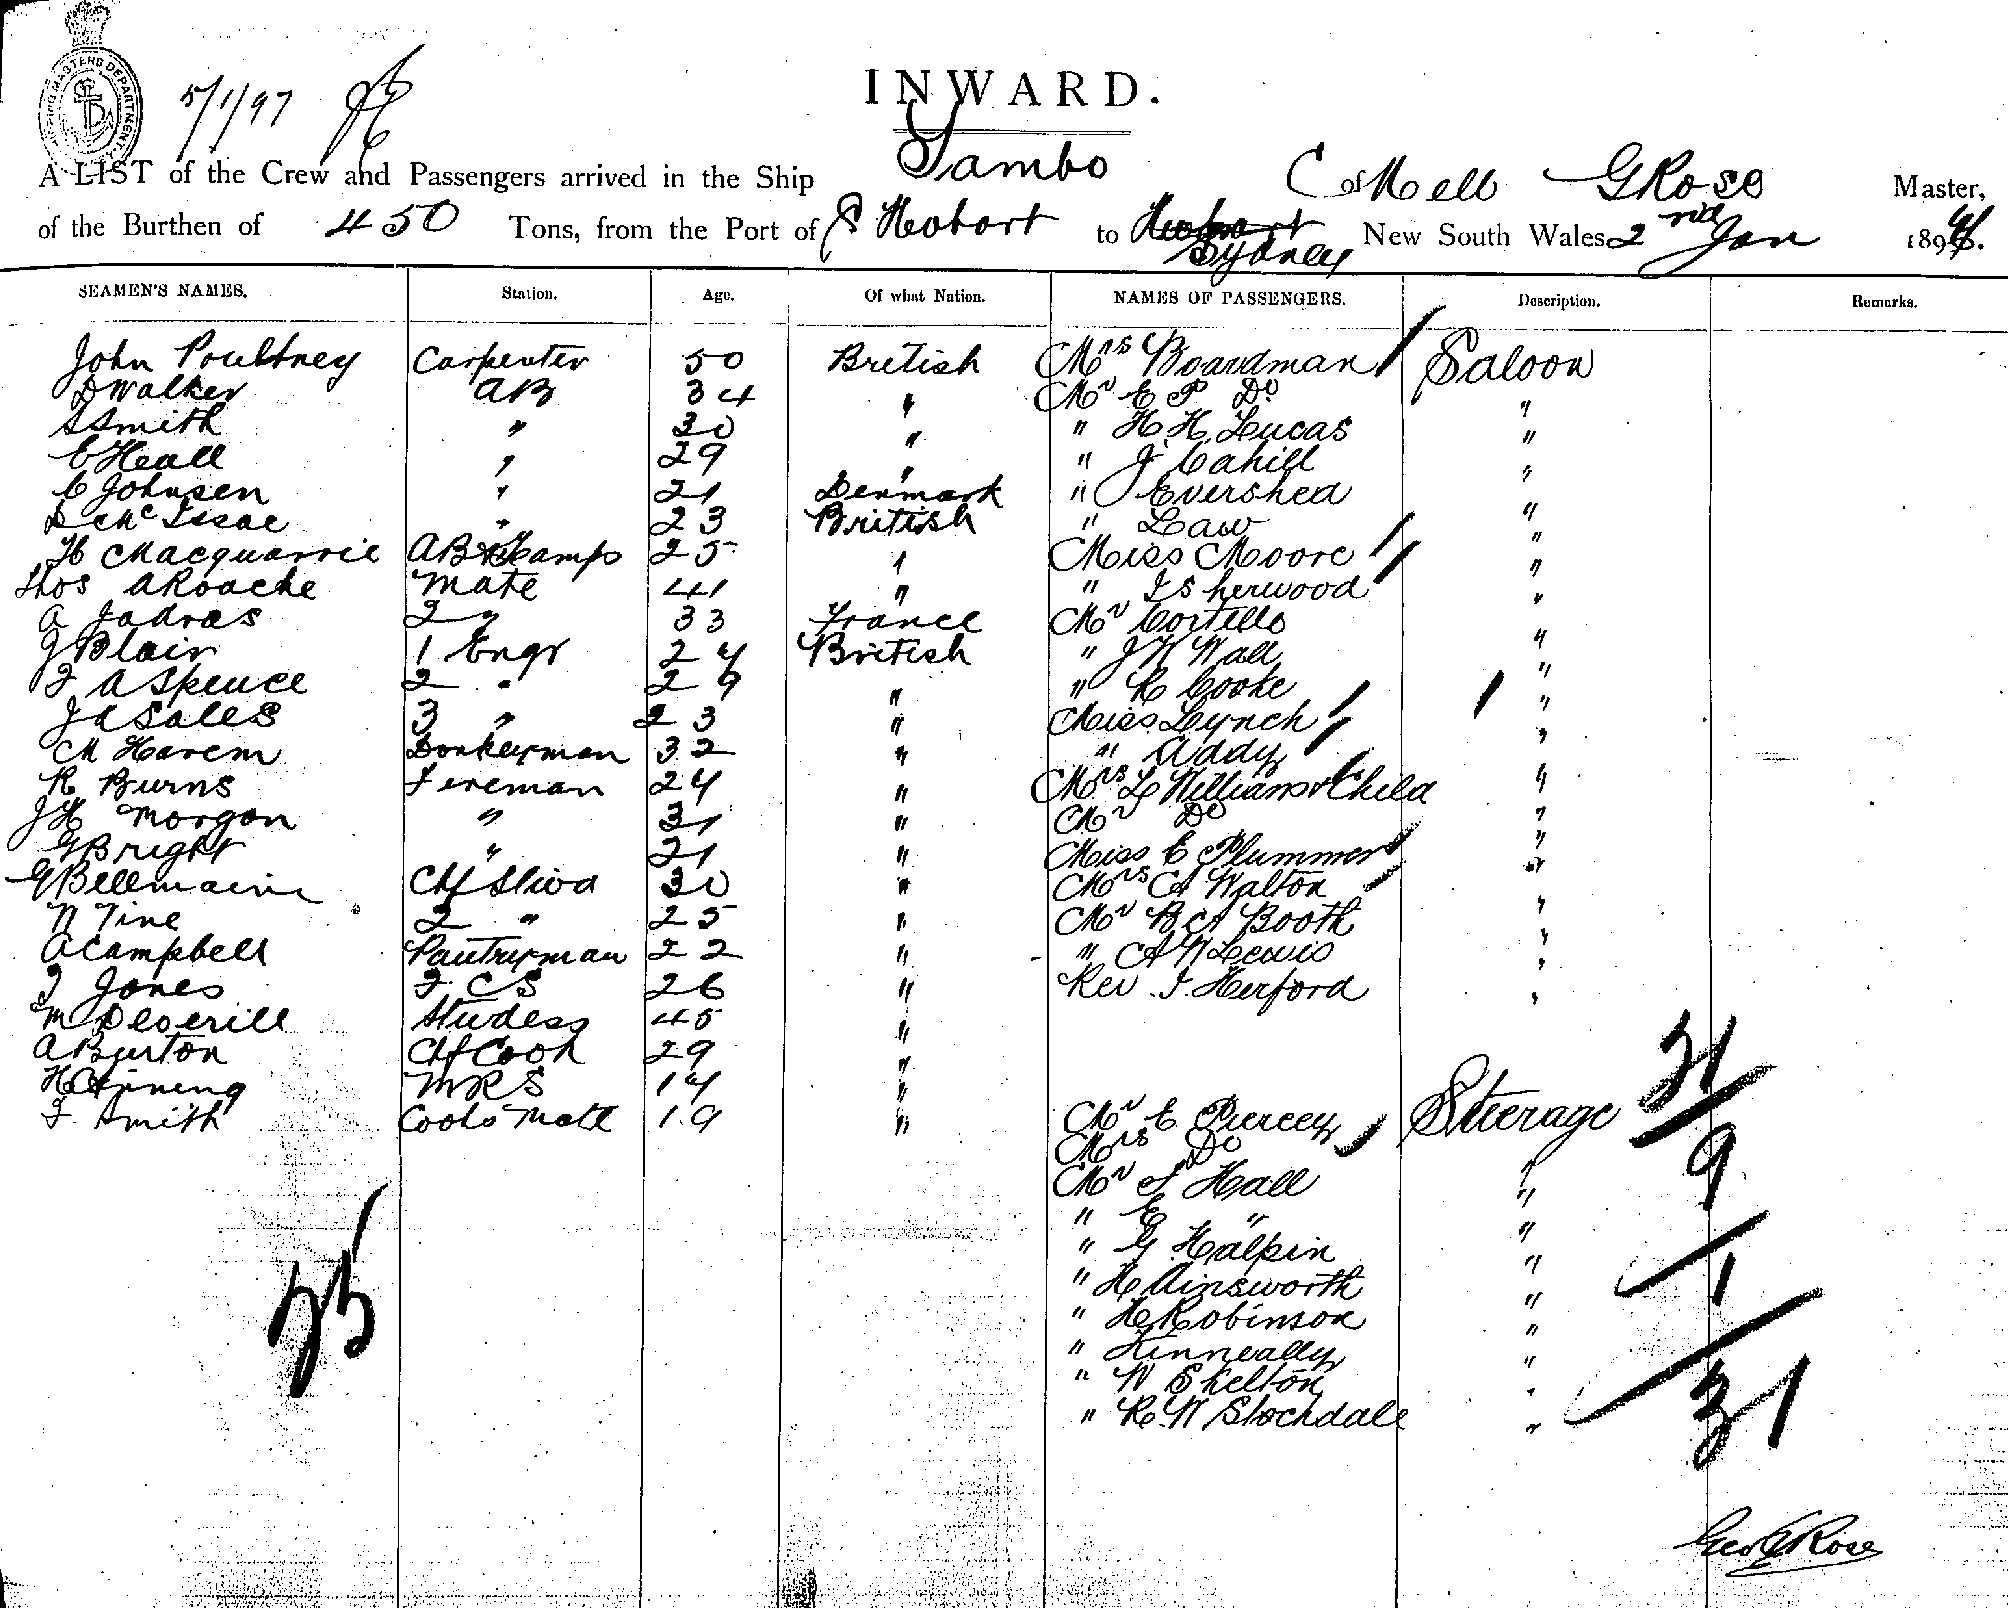 SHIPPING MASTERS DEPARTMENT
5/1/97
INWARD.
A LIST of the Crew and Passengers arrived in the Ship Tambo of Mell G Rose Master,
of the Burthen of 450 Tons, from the Port of Hobart to Hobart Sydney New South Wales 2nd Jan 189
SEAMEN'S NAMES. Station. Age. Of what Nation. NAMES OF PASSENGERS. Description. Remarks.
John Poultney Carpenter 50 British Mrs Boardman Saloon
D Walker AB 34 " Mr E P Do "
S Smith " 30 " " H H Lucas "
C Heall " 29 " " J Cahill "
C Johnsen " 21 Denmark " Evershed "
D McIssac " 23 British " Law "
H Macquarrie AB & Lamps 25 " Miss Moore "
Thos A Roache Mate 41 " " Isherwood "
A Jadras 2 " 33 France Mr Costello "
J Blair 1 Engr 24 British " J W Wall "
F A Spence 2 " 29 " " R Cooke "
J A Sales 3 " 23 " Miss Lynch "
M Harem Donkeyman 32 " " Addy "
R Burns Fireman 24 " Mrs L Williams & Child "
J H Morgan " 31 " Mr Do "
G Bright " 21 " Miss E Plummer "
G Bellmaine Chf Stwd 30 " Mrs A Walton "
N Tine 2 " 25 " Mr B A Booth "
A Campbell Pantryman 22 " " A W Lewis "
J Jones F.C.S 26 " Rev J. Herford "
M Deverill Studess 45 "
A Burton Chf Cook 29 " 21
H Cinning MRS 14 "
F Smith Cooks Mate 19 " Mr E Piercey Steerage
Mrs Do " 9
Mr S Hall "
" E " "
" G Halpin " 1
" H Ainsworth "
" H Robinson "
" Kinneally "
" W Skelton "
" R. W Stockdale "
25
31
Geo G Rose